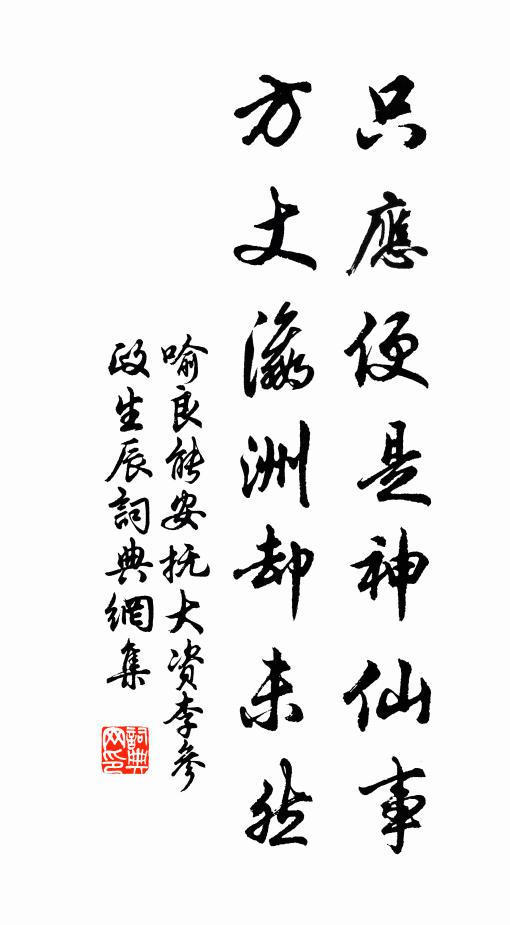 只應便是神仙事
方丈瀛洲却未然
喻良能安抚大资李參
政生辰詞典網集
詞典網印